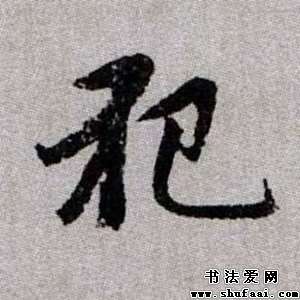 犯
书法爱网
www.shufaai.com